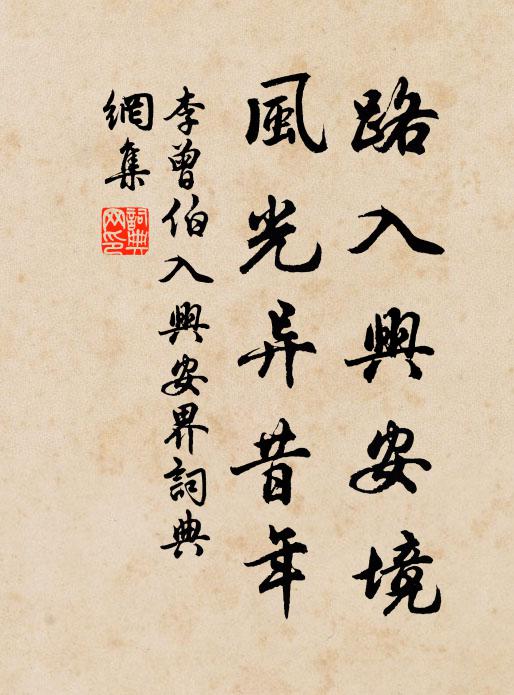 路入興安境
風光异昔年
李曾伯入興安界詞典
網集
詞典網印